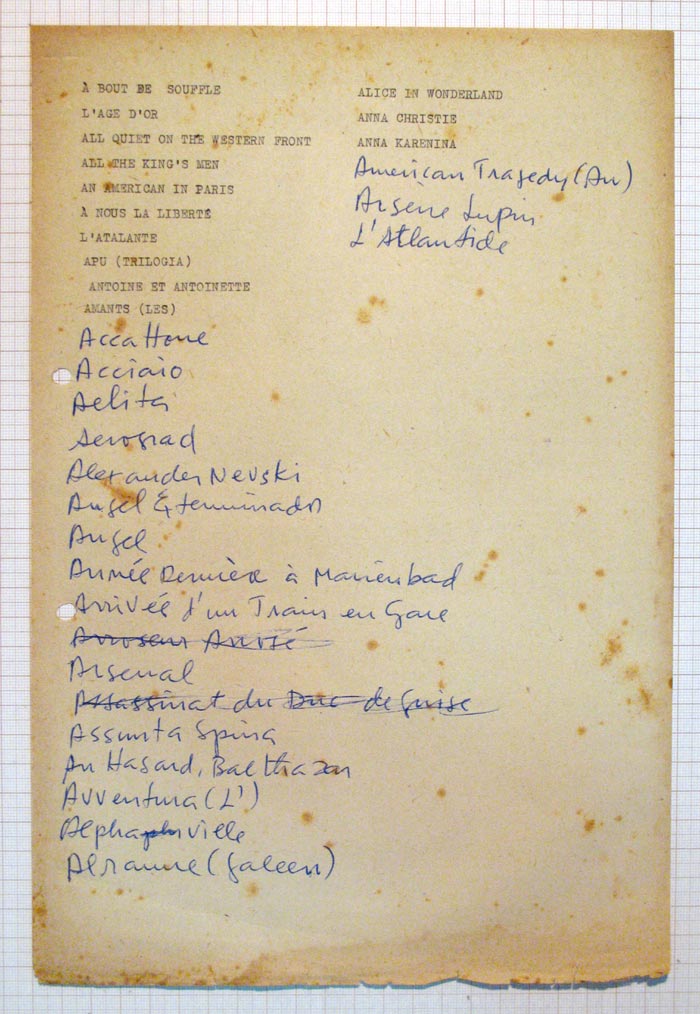 À BOUT DE SOUFFLE
L'AGE D'OR
ALL QUIET ON THE WESTERN FRONT
ALL THE KING'S MEN
AN AMERICAN IN PARIS
À NOUS LA LIBERTÉ
L'ATALANTE
APU (TRILOGIA)
ANTOINE ET ANTOINETTE
AMANTS (LES)
Accattone
Acciaio
Aelita
Aerograd
Alexander Nevski
Angel Exterminador
Angel
Année Dernière à Marienbad
Arrivée d'un Train en Gare
Arroseur Arrosé
Arsenal
Assassinat du Duc de Guise
Assunta Spina
Au Hasard, Balthazar
Avventura (L')
Alphaville
Alraune (Galeen)
ALICE IN WONDERLAND
ANNA CHRISTIE
ANNA KARENINA
American Tragedy (An)
Arsène Lupin
L'Atlantide